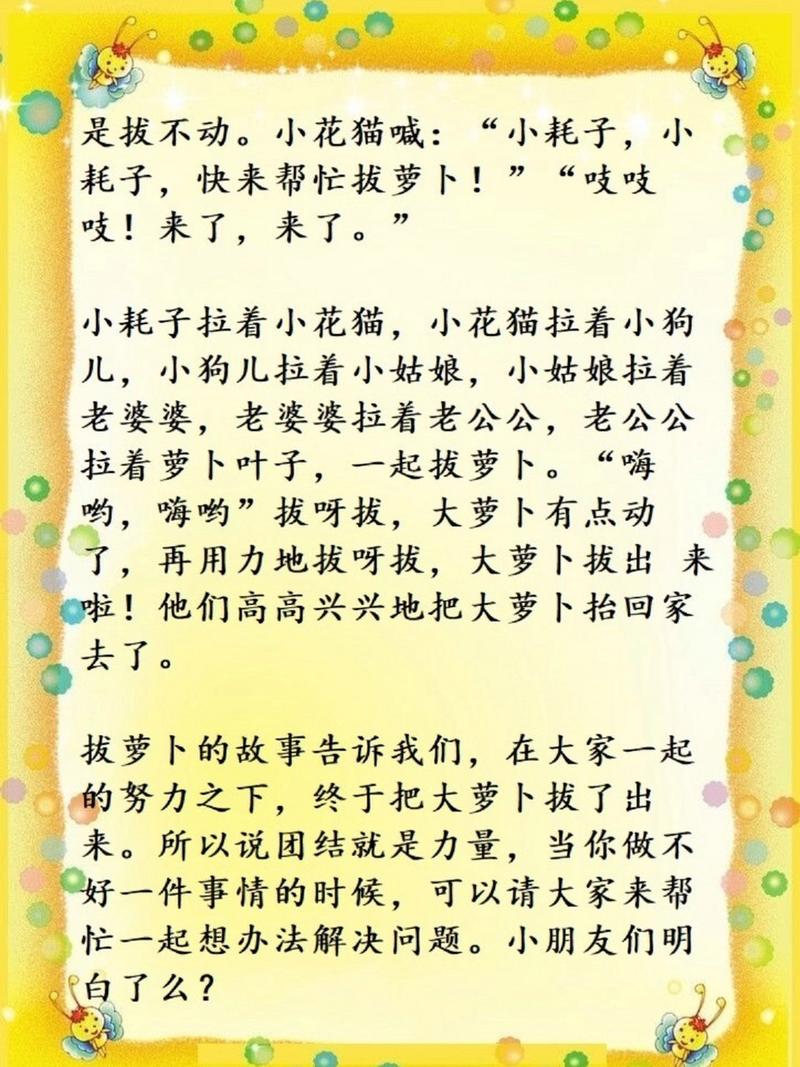 是拔不动。小花猫喊：“小耗子，小
耗子，快来帮忙拔萝卜！”“吱吱
吱！来了，来了。”
小耗子拉着小花猫，小花猫拉着小狗
儿，小狗儿拉着小姑娘，小姑娘拉着
老婆婆，老婆婆拉着老公公，老公公
拉着萝卜叶子，一起拔萝卜。“嗨
哟，嗨哟”拔呀拔，大萝卜有点动
了，再用力地拔呀拔，大萝卜拔出 来
啦！他们高高兴兴地把大萝卜抬回家
去了。
拔萝卜的故事告诉我们，在大家一起
的努力之下，终于把大萝卜拔了出
来。所以说团结就是力量，当你做不
好一件事情的时候，可以请大家来帮
忙一起想办法解决问题。小朋友们明
白了么？